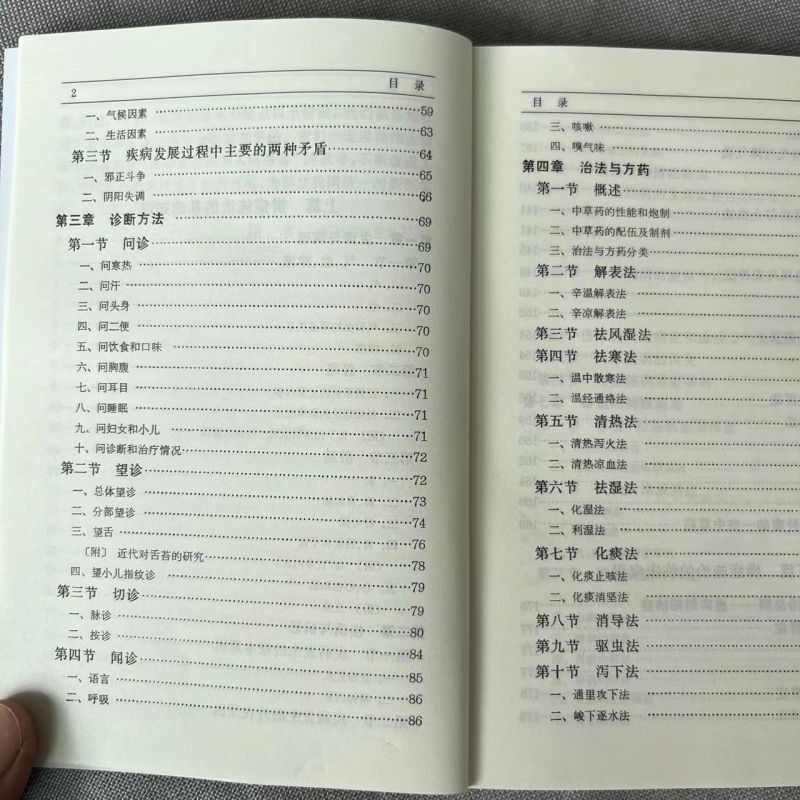 2 目 录
一、气候因素 59
二、生活因素 63
第三节 疾病发展过程中主要的两种矛盾 64
一、邪正斗争 65
二、阴阳失调 66
第三章 诊断方法 69
第一节 问诊 69
一、问寒热 70
二、问汗 70
三、问头身 70
四、问二便 70
五、问饮食和口味 70
六、问胸腹 71
七、问耳目 71
八、问睡眠 71
九、问妇女和小儿 71
十、问诊断和治疗情况 72
第二节 望诊 72
一、总体望诊 73
二、分部望诊 74
三、望舌 76
〔附〕 近代对舌苔的研究 78
四、望小儿指纹诊 79
第三节 切诊 79
一、脉诊 80
二、按诊 84
第四节 闻诊 84
一、语言 85
二、呼吸 86
86
目 录
三、咳嗽
四、嗅气味
第四章 治法与方药
第一节 概述
一、中草药的性能和炮制
二、中草药的配伍及制剂
三、治法与方药分类
第二节 解表法
一、辛温解表法
二、辛凉解表法
第三节 祛风湿法
第四节 祛寒法
一、温中散寒法
二、温经通络法
第五节 清热法
一、清热泻火法
二、清热凉血法
第六节 祛湿法
一、化湿法
二、利湿法
第七节 化痰法
一、化痰止咳法
二、化痰消坚法
第八节 消导法
第九节 驱虫法
第十节 泻下法
一、通里攻下法
二、峻下逐水法